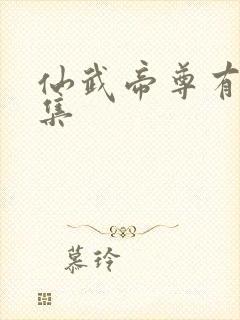 仙武帝尊有
集
慕玲